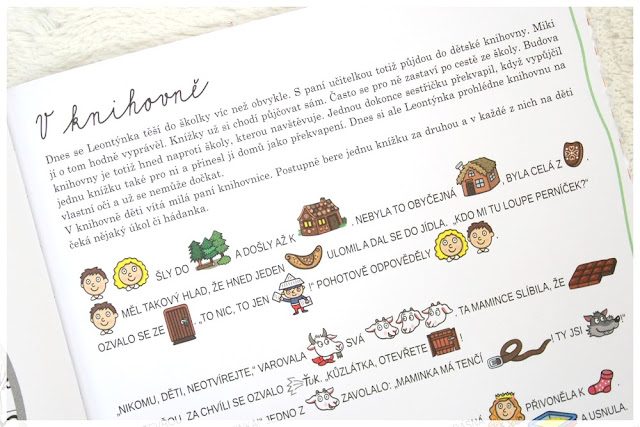 V knihovně
Dnes se Leontýnka těší do školky víc než obvykle. S paní učitelkou totiž půjdou do dětské knihovny. Miki
jí o tom hodně vyprávěl. Knížky už si chodí půjčovat sám. Často se pro ně zastaví po cestě ze školy. Budova
knihovny je totiž hned naproti školy, kterou navštěvuje. Jednou dokonce sestřičku překvapil, když vypůjčil
jednu knížku také pro ni a přinesl ji domů jako překvapení. Dnes si ale Leontýnka prohlédne knihovnu na
vlastní oči a už se nemůže dočkat.
V knihovně děti vítá milá paní knihovnice. Postupně bere jednu knížku za druhou a v každé z nich na děti
čeká nějaký úkol či hádanka.
ŠLY DO A DOŠLY AŽ K . NEBYLA TO OBYČEJNÁ , BYLA CELÁ Z .
MĚL TAKOVÝ HLAD, ŽE HNED JEDEN ULOMIL A DAL SE DO JÍDLA. „KDO MI TU LOUPE PERNÍČEK?“
OZVALO SE ZE . „TO NIC, TO JEN !“ POHOTOVĚ ODPOVĚDĚLY .
„NIKOMU, DĚTI, NEOTVÍREJTE,“ VAROVALA SVÁ . TA MAMINCE SLÍBILA, ŽE
ZA CHVÍLI SE OZVALO ŤUK. „KŮZLÁTKA, OTEVŘETE !
JEDNO Z ZAVOLALO: „MAMINKA MÁ TENČÍ ! TY JSI !“
PŘIVONĚLA K
A USNULA.